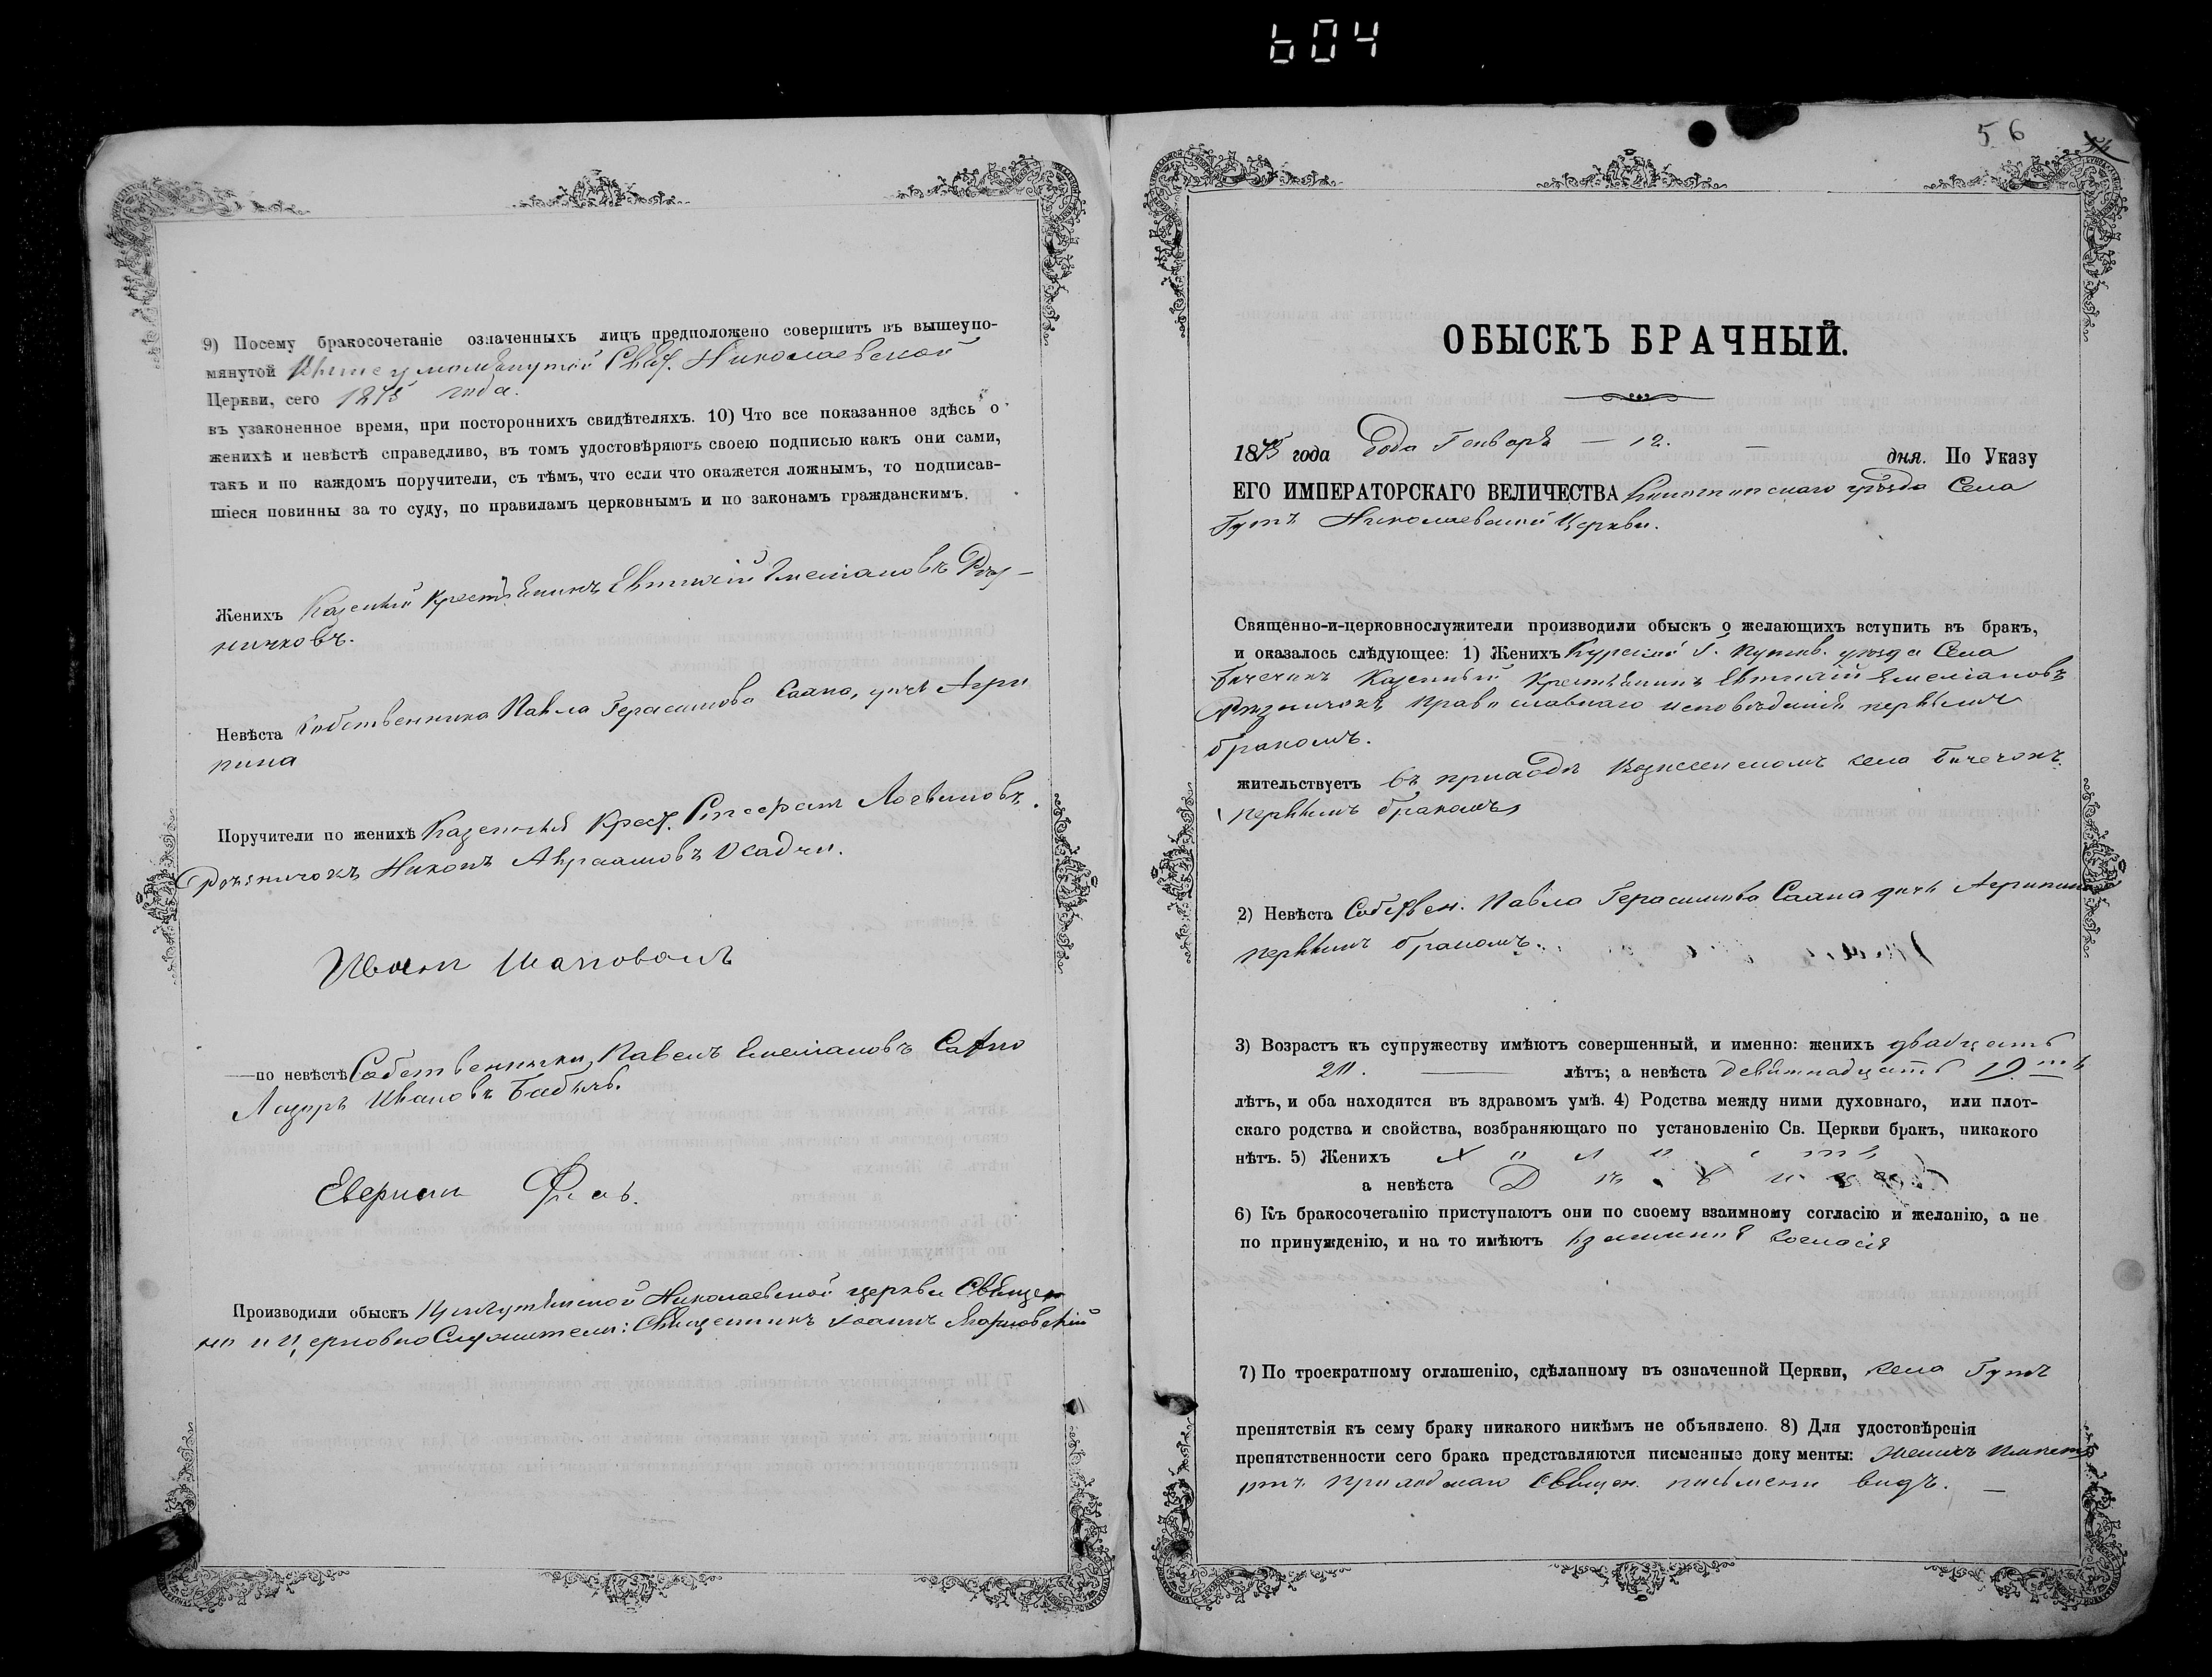 604
9) Посему бракосочетаніе означенныхъ лицъ предположено совершить въ вышеупо-
мянутой Вышеупомянутой Николаевской
Церкви, сего 1875 года.
въ узаконенное время, при постороннихъ свидѣтеляхъ. 10) Что все показанное здѣсь о
женихѣ и невѣстѣ справедливо, въ томъ удостовѣряютъ своею подписью какъ они сами,
такъ и по каждомъ поручители, съ тѣмъ, что если что окажется ложнымъ, то подписав-
шіеся повинны за то суду, по правиламъ церковнымъ и по законамъ гражданскимъ.
Женихъ Казенный Крестьянинъ Евтихій Емеліановъ
Невѣста Собственника Павла Герасимова Саана, дичь Агри
пина
Поручители по женихѣ Казенный Крест.
Никонъ Авраамовъ Осадчи.
Иванъ Шаповалъ
по невѣстѣ Собственники, Павелъ Емеліановъ
Лазарь Ивановъ Бабичъ.
Производили обыскъ Николаевской церкви Священ
но и церковно Служители: Священникъ Іоаннъ
56
ОБЫСКЪ БРАЧНЫЙ.
1875 года Года Генваря — 12. — дня. По Указу
ЕГО ИМПЕРАТОРСКАГО ВЕЛИЧЕСТВА Конотопскаго уѣзда Села
Гутъ Николаевской Церкви.
Священно-и-церковнослужители производили обыскъ о желающихъ вступить въ бракъ,
и оказалось слѣдующее: 1) Женихъ Курской Г. Путив. уѣзда Села
Бочечекъ Казенный Крестьянинъ Евтихій Емеліановъ
Резничокъ Православнаго исповѣданія первымъ
бракомъ.
жительствуетъ въ приходѣ Вознесенскомъ села Бочечокъ
первымъ бракомъ
2) Невѣста Собствен. Павла Герасимова Саана дичь Агрипина
первымъ бракомъ.
3) Возрастъ къ супружеству имѣютъ совершенный, и именно: женихъ двадцать
20. лѣтъ; а невѣста девятнадцать 19.ть
лѣтъ, и оба находятся въ здравомъ умѣ. 4) Родства между ними духовнаго, или плот-
скаго родства и свойства, возбраняющаго по установленію Св. Церкви бракъ, никакого
нѣтъ. 5) Женихъ
а невѣста
6) Къ бракосочетанію приступаютъ они по своему взаимному согласію и желанію, а не
по принужденію, и на то имѣютъ взаимния согласія
7) По троекратному оглашенію, сдѣланному въ означенной Церкви, села Гутъ
препятствія къ сему браку никакого никѣмъ не объявлено. 8) Для удостовѣренія
препятственности сего брака представляются писменные доку менты: женихъ
отъ приходскаго Священ. письмени видъ. —